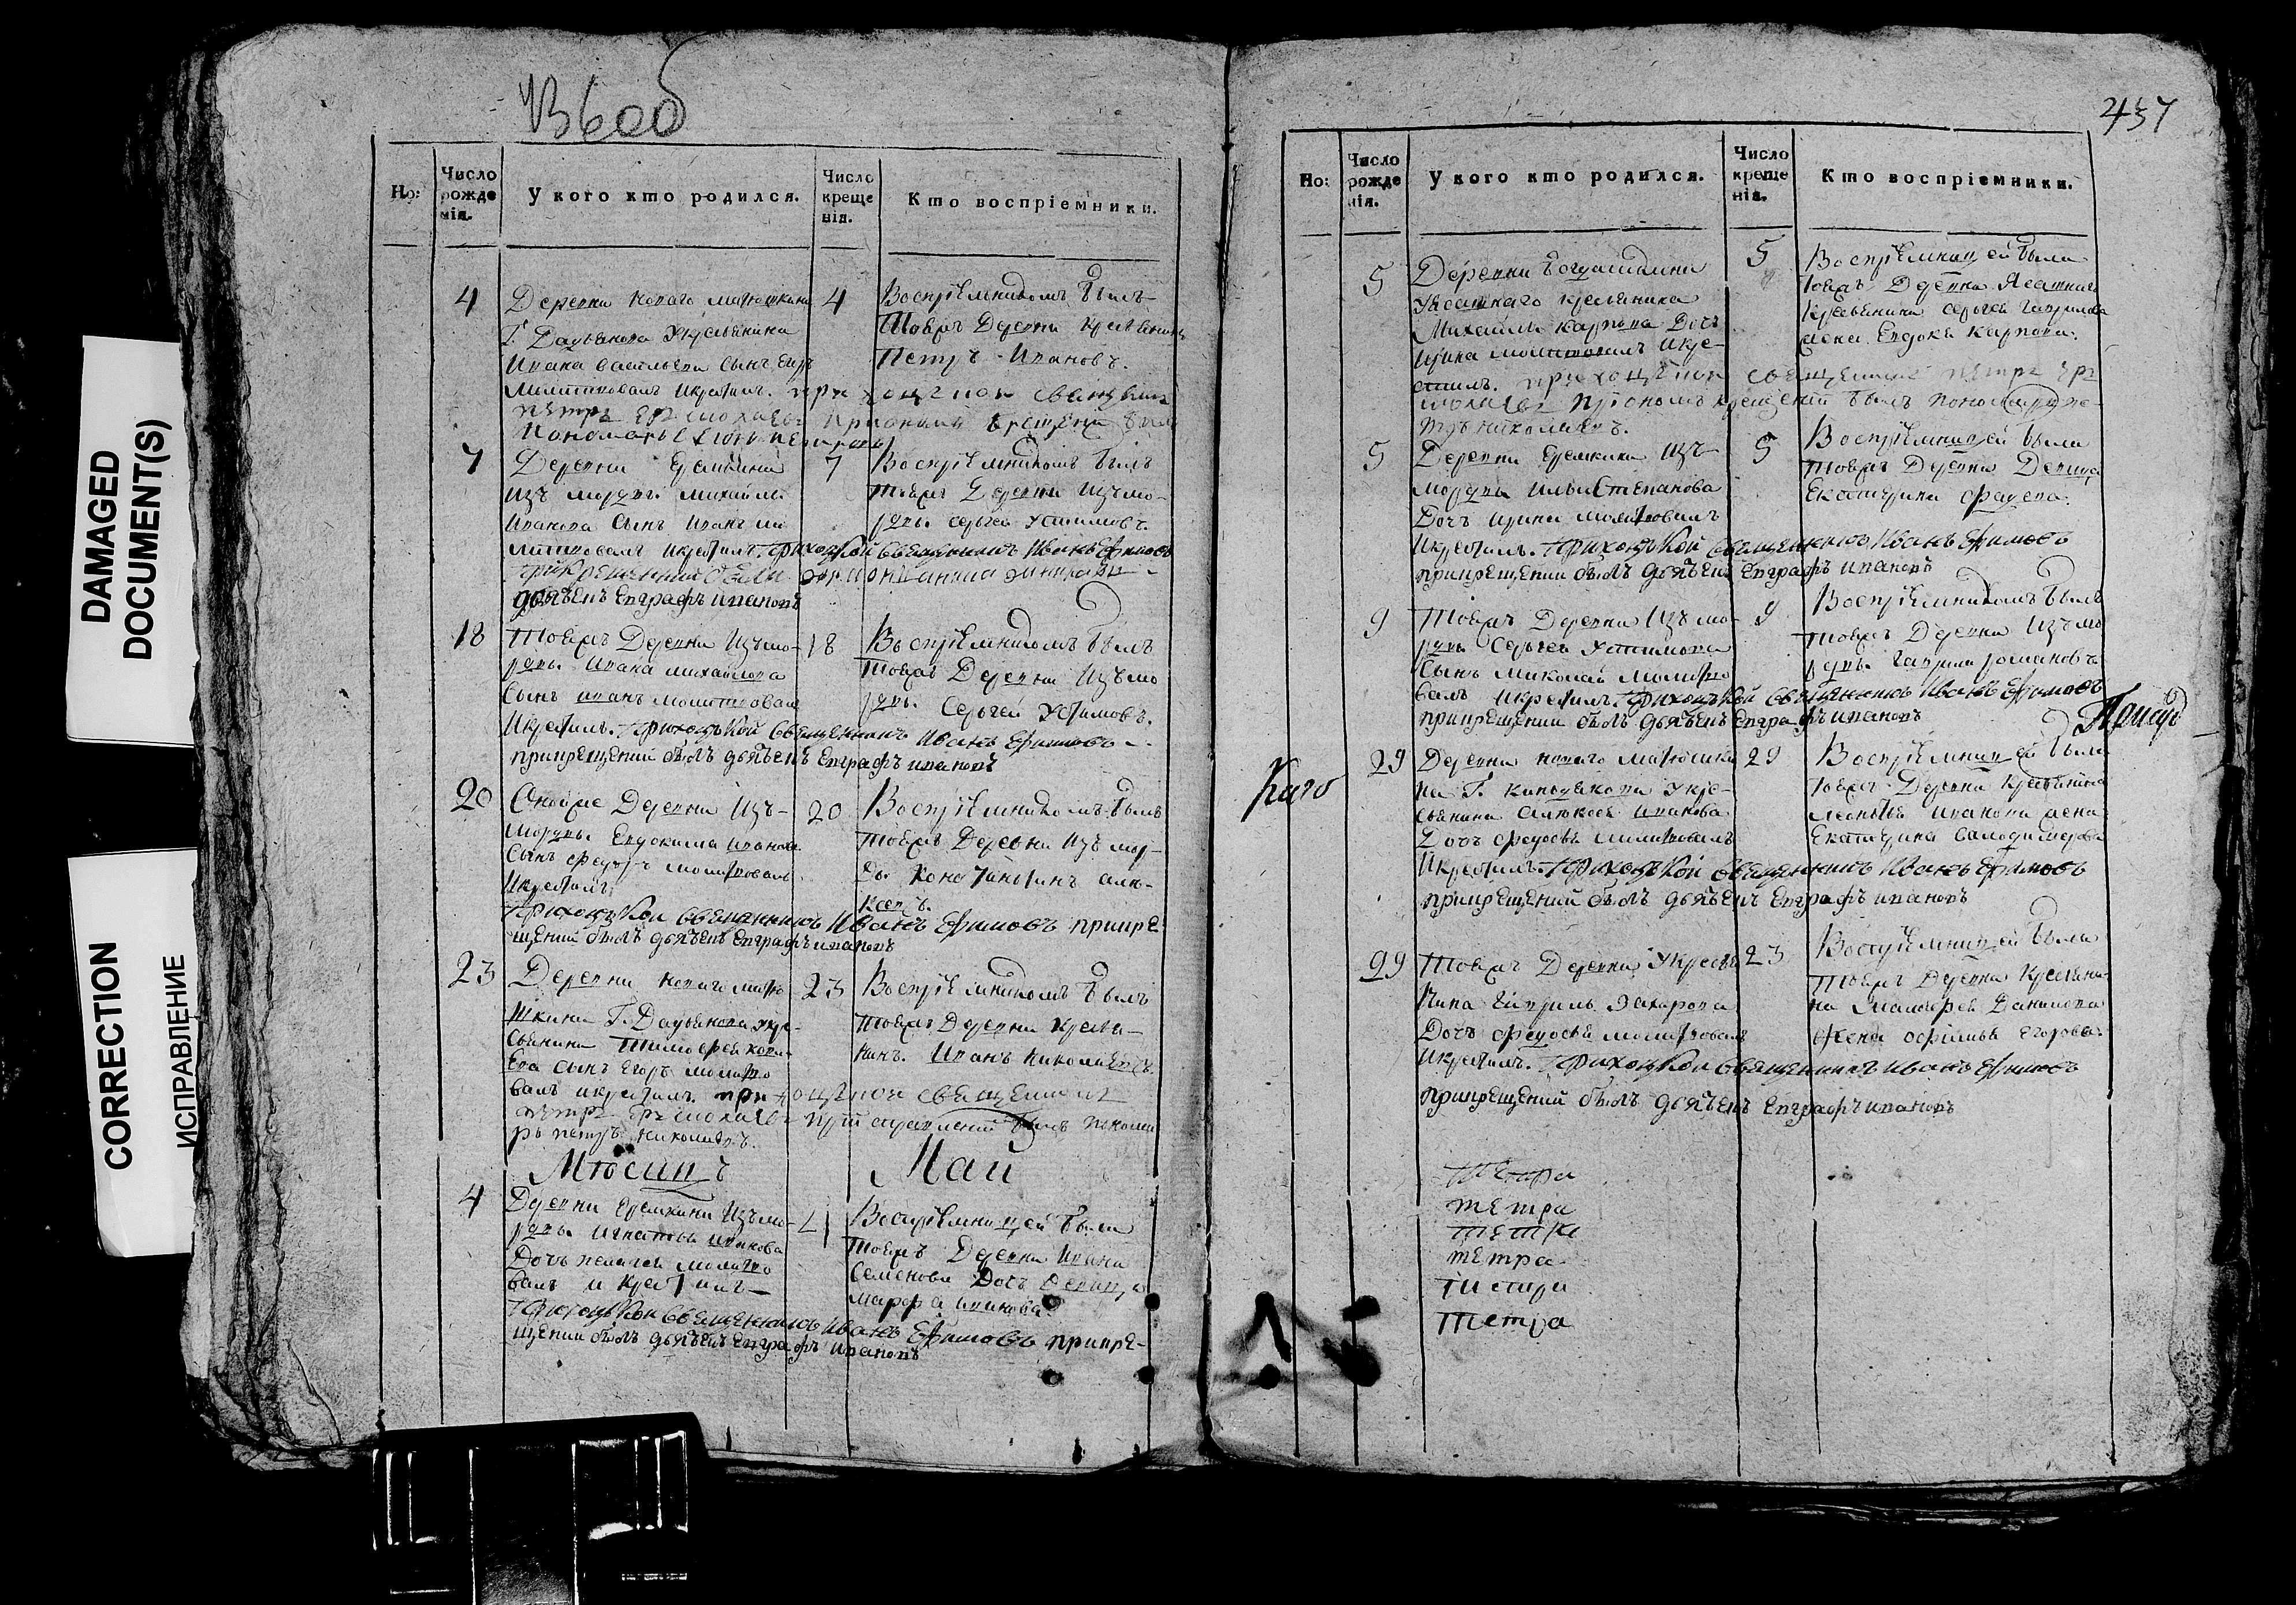 436об
437
DAMAGED
DOCUMENT(S)
CORRECTION
ИСПРАВЛЕНІЕ
Но:
Число рожденія.
У кого кто родился.
Число крещенія.
Кто воспріемники.
4
Деревни Новаго Матюшкина
Г. Даурьянова у крестьянина
Ивана Васильева сынъ Егоръ
молитвовалъ и крестилъ. приходцкой священникъ
петръ ермолаевъ при ономъ крещении былъ
пономарь
4
Воспрїемникомъ былъ
тоежъ Деревни крестьянинъ
Петръ Ивановъ.
7
Деревни Еремкини
изъ мордвы Михайлы
Иванова сынъ Иванъ мо
литвовалъ и крестилъ. Приходцкой священникъ Иванъ Ефимовъ
при крещении были
дьячекъ Евграфъ Ивановъ
7
Воспрїемникомъ былъ
тоежъ Деревни изъ мо-
рдвы Сергей Устимовъ.
18
Тоежъ Деревни изъ мо-
рдвы Ивана Михайлова
сынъ Иванъ молитвовалъ
и крестилъ. Приходцкой священникъ Иванъ Ефимовъ
при крещении былъ дьячекъ Евграфъ Ивановъ
18
Воспрїемникомъ былъ
тоежъ Деревни изъ мо
рдвы Сергей Устимовъ.
20
Оной же Деревни изъ-
мордвы Евдокима Иванова
сынъ Федоръ молитвовалъ
и крестилъ.
Приходцкой священникъ Иванъ Ефимовъ при кре-
щении былъ дьячекъ Евграфъ Ивановъ
20
Воспрїемникомъ былъ
тоежъ Деревни изъ мор-
двы Констаньтинъ Але-
ксевъ.
23
Деревни Новаго Матю
шкина Г. Даурьянова у кре-
стьянина Тимофея
сынъ Егоръ молитво
валъ и крестилъ. приходцкой священникъ
петръ ермолаевъ при крещении былъ понома
рь петръ николаевъ.
23
Воспрїемникомъ былъ
тоежъ Деревни крестья-
нинъ Иванъ Николаевъ.
Мѣсицъ Май
4
Деревни Еремкини изъ мо-
рдвы Игнатья Иванова
дочь Пелагея молитво
валъ и крестилъ
Приходцкой священникъ Иванъ Ефимовъ при кре-
щении былъ дьячекъ Евграфъ Ивановъ
4
Воспрїемницей была
тоежъ Деревни Ивана
Семенова дочь девица
Марфа Иванова.
Но:
Число рожденія.
У кого кто родился.
Число крещенія.
Кто воспріемники.
5
Деревни Богдашкини
у ясашнаго крестьянина
Михайлы Карпова дочь
Ирина молитвовалъ и кре-
стилъ. приходцкой священникъ петръ ер
молаевъ при ономъ крещении былъ пономарь пе-
тръ николаевъ.
5
Воспрїемницей была
тоежъ Деревни ясашнаго
крестьянина Сергея Гаврилова
жена Евдокея Карпова.
5
Деревни Еремкини изъ
мордвы Ильи Степанова
дочь Ирина молитвовалъ
и крестилъ. Приходцкой священникъ Иванъ Ефимовъ
при крещении былъ дьячекъ Евграфъ Ивановъ
5
Воспрїемницей была
тоежъ Деревни девица
Екатерина Фадеева.
9
Тоежъ Деревни изъ мо-
рдвы Сергея Устимова
сынъ Николай молитво
валъ и крестилъ. Приходцкой священникъ Иванъ Ефимовъ
при крещении былъ дьячекъ Евграфъ Ивановъ
9
Воспрїемникомъ былъ
тоежъ Деревни изъ мо
рдвы Гаврила Романовъ
29
Деревни Новаго Матюшки
на Г. у кре-
стьянина Алексея Иванова
дочь Федосья молитвовалъ
и крестилъ. Приходцкой священникъ Иванъ Ефимовъ
при крещении былъ дьячекъ Евграфъ Ивановъ
29
Воспрїемницей была
тоежъ Деревни крестьянина
Леонтья Иванова жена
Екатерина Володимерова
29
Тоежъ Деревни у кресть
нина Гаврилы Захарова
дочь Федосья молитвовалъ
и крестилъ. Приходцкой священникъ Иванъ Ефимовъ
при крещении былъ дьячекъ Евграфъ Ивановъ
23
Воспрїемницей была
тоежъ Деревни крестьяни-
на Данилова
жена Офимья Егорова.
тетра
тетра
тетра
Тетра